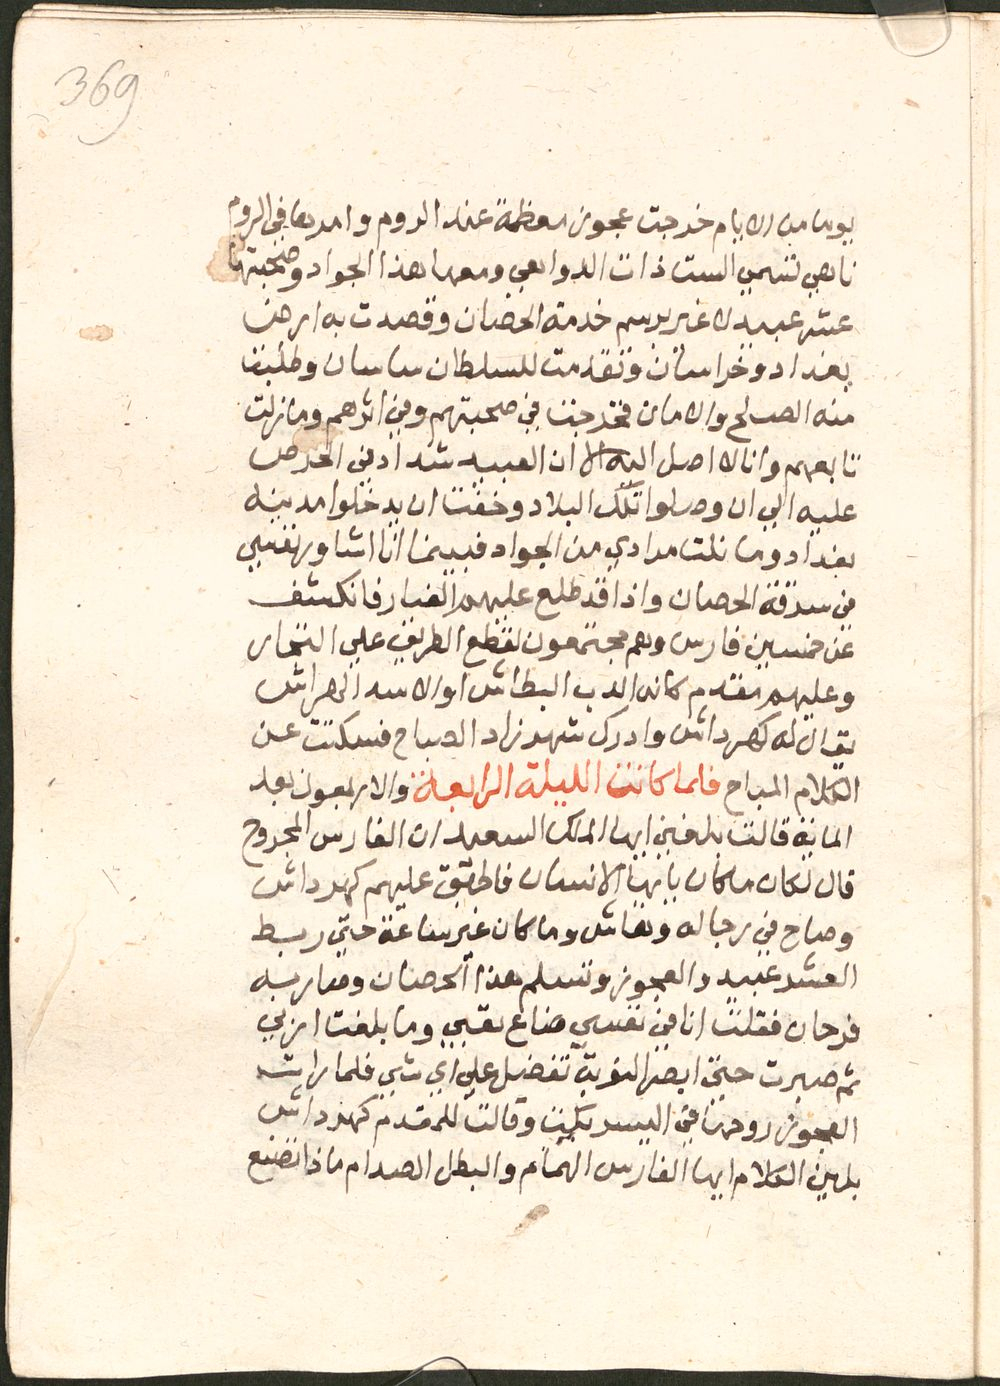 369
يوما من الايام خرجت عجوز معظمة عند الروم وامرها في الروم
ناهي تسمي الست ذات الدواهي ومعها هذا الجواد وصحبتها
عشر عبيد لا غير برسم خدمة الحصان وقصدت به ارض
بغداد وخراسان وتقدمت للسلطان ساسان وطلبت
منه الصلح والامان فخرجت في صحبتهم وفي اثرهم وما زلت
تابعهم وانا لا اصل اليه الا ان العبيد شداد في الحرص
عليه الي ان وصلوا تلك البلاد وخفت ان يدخلوا مدينه
بغداد وما نلت مرادي من الجواد فبينما انا اشاور نفسي
في سرقة الحصان واذا قد طلع عليهم الغبار فانكشف
عن خمسين فارس وهم مجتمعون لقطع الطريق علي التجار
وعليهم مقدم كانه الدب البطاش او الاسد الهراش
يقال له كهرداش وادرك شهرزاد الصباح فسكتت عن
الكلام المباح فلما كانت الليلة الرابعة والاربعون بعد
الماية قالت بلغني ايها الملك السعيد ان الفارس المجروح
قال لكان ماكان يا ايها الانسان فاطبق عليهم كهرداش
وصاح في رجاله وهاش وما كان غير ساعة حتي ربط
العشر عبيد والعجوز وتسلم هذا الحصان وصار به
فرحان فقلت انا في نفسي ضاع تعبي وما بلغت اربي
ثم صبرت حتي ابصر النوبة تفضل علي اي شي فلما رات
العجوز روحها في اليسر بكت وقالت للمقدم كهرداش
بلهين الكلام ايها الفارس الهمام والبطل الصدام ماذا تصنع